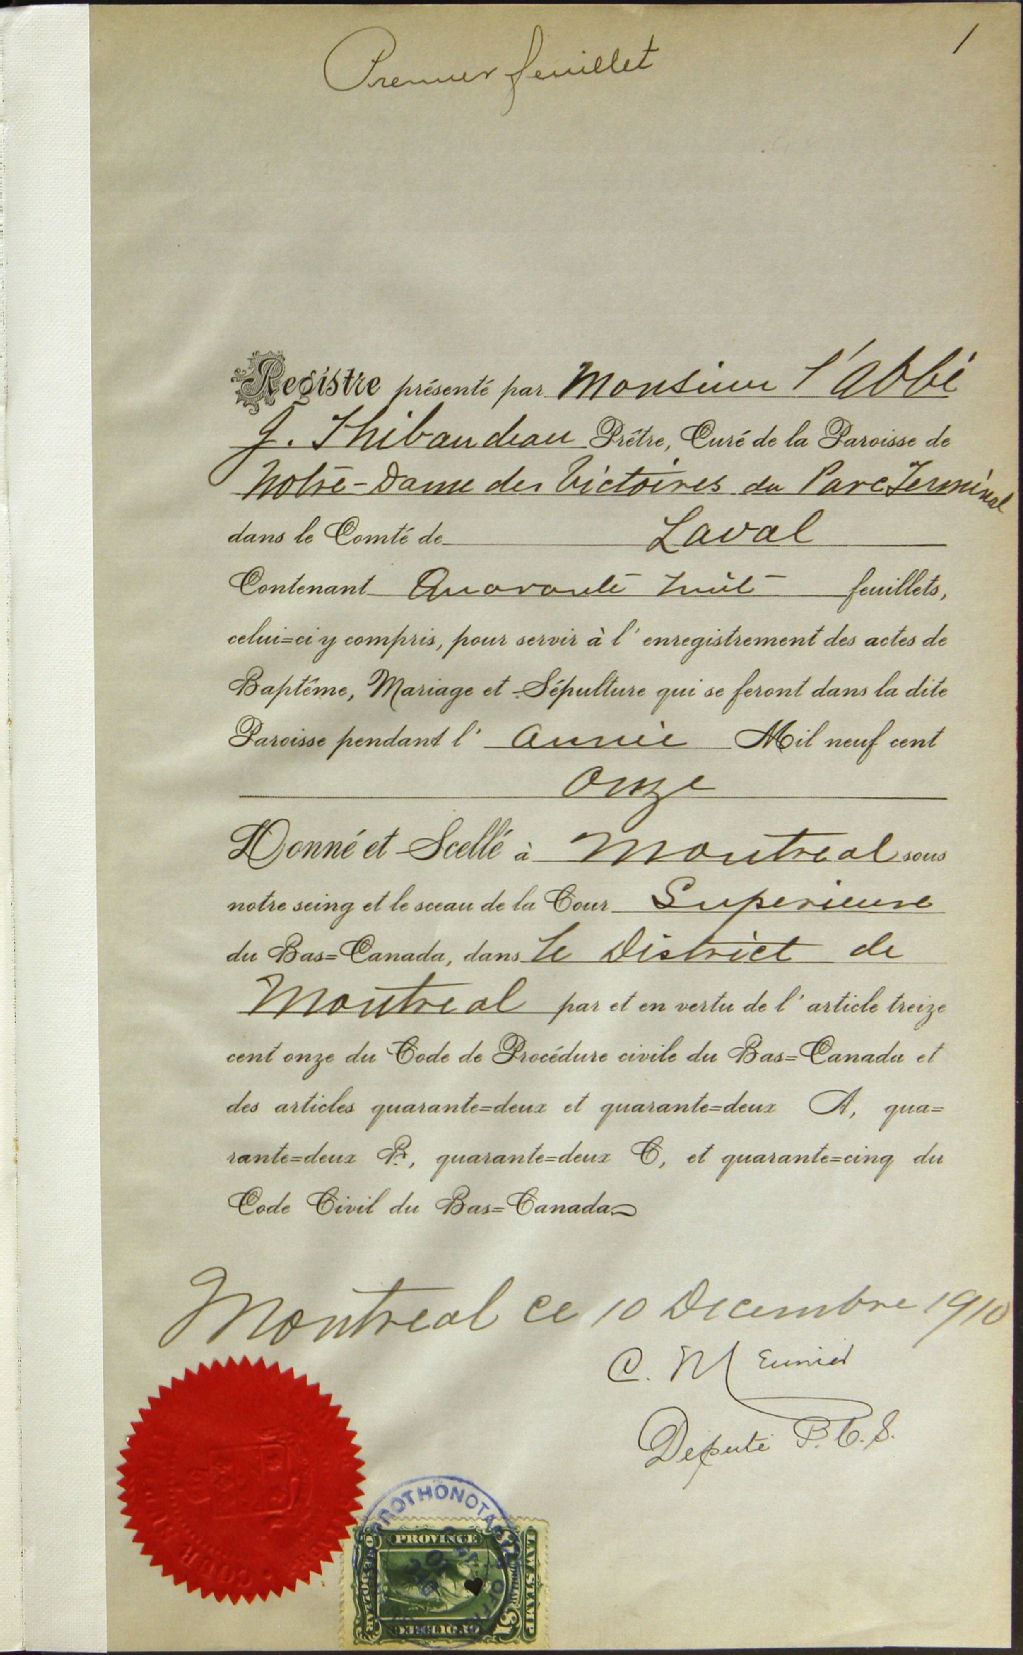 1
Premier feuillet
Registre présenté par Monsieur l'Abbé
J. Thibaudeau Prêtre, Curé de la Paroisse de
Notre-Dame des Victoires du Parc Terminal
dans le Comté de Laval
Contenant Quarante huit feuillets,
celui=ci y compris, pour servir à l'enregistrement des actes de
Baptême, Mariage et Sépulture qui se feront dans la dite
Paroisse pendant l'année Mil neuf cent
Onze
Donné et Scellé à Montreal sous
notre seing et le sceau de la Cour Superieure
du Bas=Canada, dans le District de
Montreal par et en vertu de l'article treize
cent onze du Code de Procédure civile du Bas=Canada et
des articles quarante=deux et quarante=deux A, qua=
rante=deux B, quarante=deux C, et quarante=cinq du
Code Civil du Bas=Canada
Montreal ce 10 Decembre 1910
C. Meunier
Deputé P.C.S.
COUR
PROTHONOTA
PROVINCE
QUEBEC
LAW STAMP